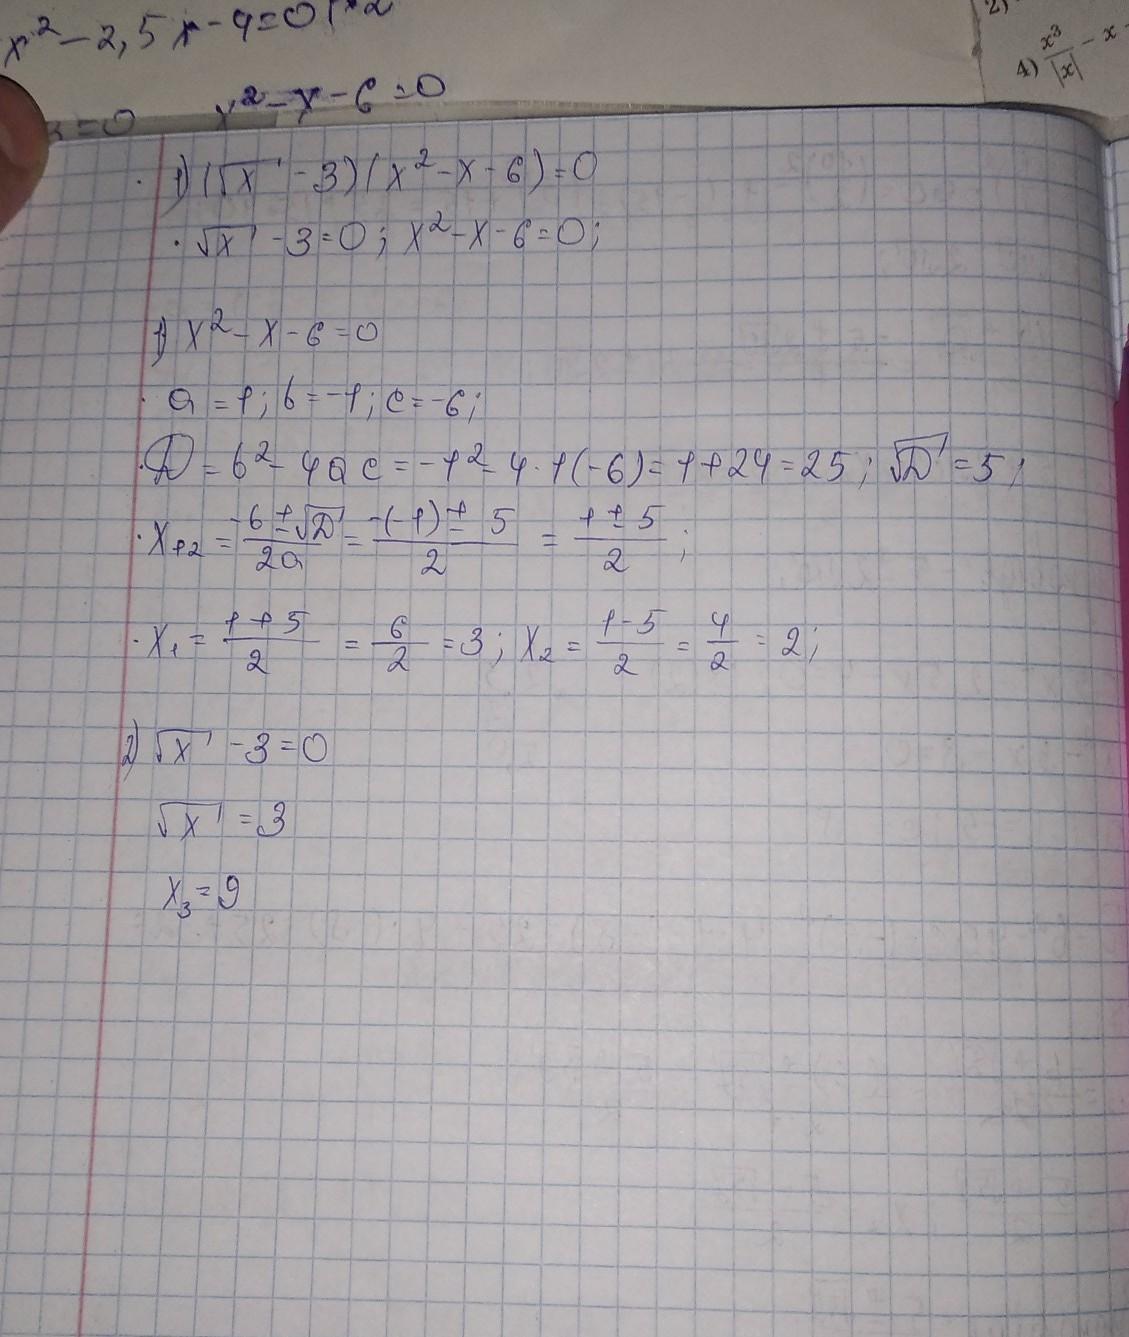 x² - 2,5x - 4 = 0 | *2
= 0
x² - x - 6 = 0
2)
4) x³/|x| - x -
1) (√x - 3)(x² - x - 6) = 0
· √x - 3 = 0; x² - x - 6 = 0;
1) x² - x - 6 = 0
· a = 1; b = -1; c = -6;
· D = b² - 4ac = -1² - 4·1(-6) = 1 + 24 = 25; √D = 5;
· x₁₂ = (-b ± √D)/2a = (-(-1) ± 5)/2 = (1 ± 5)/2;
· x₁ = (1 + 5)/2 = 6/2 = 3; x₂ = (1 - 5)/2 = 4/2 = 2;
2) √x - 3 = 0
√x = 3
x₃ = 9